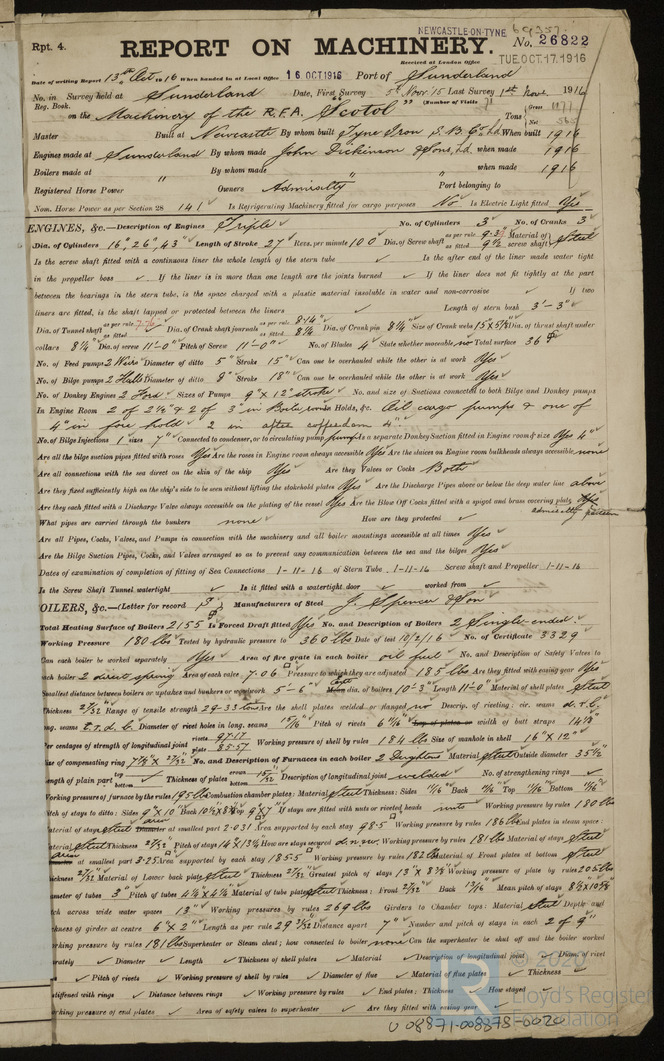 Rpt. 4. REPORT ON MACHINERY. NEWCASTLE-ON-TYNE No. 26822
Received at London Office TUE. OCT. 17. 1916
Date of writing Report 13th Oct 1916 When handed in at Local Office 16 OCT 1916 Port of Sunderland
No. in Survey held at Sunderland Date, First Survey 5th Nov. 15 Last Survey 1st Nov. 1916
Reg. Book. (Number of Visits 71
on the Machinery of the R.F.A. "Scotol" Tons Gross 1177 Net
Master Built at Newcastle By whom built Tyne Iron S.B. Co. Ld. When built 1916
Engines made at Sunderland By whom made John Dickinson & Sons, Ld. when made 1916
Boilers made at " By whom made " when made 1916
Registered Horse Power Owners Admiralty Port belonging to
Nom. Horse Power as per Section 28 141 Is Refrigerating Machinery fitted for cargo purposes No Is Electric Light fitted Yes
ENGINES, &c.—Description of Engines Triple No. of Cylinders 3 No. of Cranks 3
Dia. of Cylinders 16", 26", 43" Length of Stroke 27" Revs. per minute 100 Dia. of Screw shaft as per rule as fitted 9½ Material of screw shaft Steel
Is the screw shaft fitted with a continuous liner the whole length of the stern tube Is the after end of the liner made water tight
in the propeller boss If the liner is in more than one length are the joints burned If the liner does not fit tightly at the part
between the bearings in the stern tube, is the space charged with a plastic material insoluble in water and non-corrosive If two
liners are fitted, is the shaft lapped or protected between the liners Length of stern bush 3'-3"
Dia. of Tunnel shaft as per rule 7.76 as fitted Dia. of Crank shaft journals as per rule 8.14" as fitted 8¼ Dia. of Crank pin 8¼" Size of Crank webs 15 x 5⅛ Dia. of thrust shaft under
collars 8¼" Dia. of screw 11'-0" Pitch of Screw 11'-0" No. of Blades 4 State whether moveable no Total surface 36
No. of Feed pumps 2 Weirs Diameter of ditto 5" Stroke 15" Can one be overhauled while the other is at work Yes
No. of Bilge pumps 2 Halls Diameter of ditto 8" Stroke 18" Can one be overhauled while the other is at work Yes
No. of Donkey Engines 2 Sizes of Pumps 9" x 12" stroke No. and size of Suctions connected to both Bilge and Donkey pumps
In Engine Room 2 of 2½" & 2 of 3" in Boiler room Holds, &c. Oil cargo pumps & one of
4" in fore hold 2 in after cofferdam 4"
No. of Bilge Injections 1 sizes 7" Connected to condenser, or to circulating pump pump Is a separate Donkey Suction fitted in Engine room & size Yes 4"
Are all the bilge suction pipes fitted with roses Yes Are the roses in Engine room always accessible Yes Are the sluices on Engine room bulkheads always accessible none
Are all connections with the sea direct on the skin of the ship Yes Are they Valves or Cocks Both
Are they fixed sufficiently high on the ship's side to be seen without lifting the stokehold plates Yes Are the Discharge Pipes above or below the deep water line above
Are they each fitted with a Discharge Valve always accessible on the plating of the vessel Yes Are the Blow Off Cocks fitted with a spigot and brass covering plate
admiralty pattern
What pipes are carried through the bunkers none How are they protected
Are all Pipes, Cocks, Valves, and Pumps in connection with the machinery and all boiler mountings accessible at all times Yes
Are the Bilge Suction Pipes, Cocks, and Valves arranged so as to prevent any communication between the sea and the bilges Yes
Dates of examination of completion of fitting of Sea Connections 1-11-16 of Stern Tube 1-11-16 Screw shaft and Propeller 1-11-16
Is the Screw Shaft Tunnel watertight Is it fitted with a watertight door worked from
OILERS, &c.—(Letter for record S) Manufacturers of Steel J. Spencer & Son
Total Heating Surface of Boilers 2155 Is Forced Draft fitted Yes No. and Description of Boilers 2 Single-ended
Working Pressure 180 lbs Tested by hydraulic pressure to 360 lbs Date of test 10/2/16 No. of Certificate 3329
Can each boiler be worked separately Yes Area of fire grate in each boiler oil fuel No. and Description of Safety Valves to
each boiler 2 direct spring Area of each valve 7.06 Pressure to which they are adjusted 185 lbs Are they fitted with easing gear Yes
Smallest distance between boilers or uptakes and bunkers or woodwork 5'-6" dia. of boilers 10'-3" Length 11'-0" Material of shell plates Steel
Thickness 27/32" Range of tensile strength 29-33 tons Are the shell plates welded or flanged no Descrip. of riveting: cir. seams d.r.l.
ong. seams t.r.d.b. Diameter of rivet holes in long. seams 15/16" Pitch of rivets 6 width of butt straps 14
Per centages of strength of longitudinal joint rivets 97.17 plate 85.57 Working pressure of shell by rules 184 lbs Size of manhole in shell 16" x 12"
Size of compensating ring No. and Description of Furnaces in each boiler 2 Deightons Material Steel Outside diameter 35½"
ength of plain part top bottom Thickness of plates crown bottom 15/32 Description of longitudinal joint welded No. of strengthening rings
Working pressure of furnace by the rules 195 lbs Combustion chamber plates: Material Steel Thickness: Sides 11/16" Back 11/16" Top 11/16" Bottom 11/16"
Pitch of stays to ditto: Sides 9" x 10" Back Top 9" x 7" If stays are fitted with nuts or riveted heads nuts Working pressure by rules 180 lbs
Material of stays Steel area at smallest part 2.031 Area supported by each stay 98.5 Working pressure by rules 186 lbs End plates in steam space:
aterial Steel Thickness 27/32" Pitch of stays 14 x 13½ How are stays secured d.n.&w. Working pressure by rules 181 lbs Material of stays Steel
area at smallest part 3.25 Area supported by each stay 185.5 Working pressure by rules 182 lbs Material of Front plates at bottom Steel
hickness 27/32" Material of Lower back plate Steel Thickness 27/32" Greatest pitch of stays 13" x 8¾ Working pressure of plate by rules 205 lbs
iameter of tubes 3" Pitch of tubes 4¼" x 4¼" Material of tube plates Steel Thickness: Front 27/32" Back 13/16" Mean pitch of stays
tch across wide water spaces 13" Working pressures by rules 269 lbs Girders to Chamber tops: Material Steel Depth and
ckness of girder at centre 6" x 2" Length as per rule 29 Distance apart 7" Number and pitch of stays in each 2 of 9"
orking pressure by rules 181 lbs Superheater or Steam chest; how connected to boiler none Can the superheater be shut off and the boiler worked
rately Diameter Length Thickness of shell plates Material Description of longitudinal joint Diam. of rivet
Pitch of rivets Working pressure of shell by rules Diameter of flue Material of flue plates Thickness
stiffened with rings Distance between rings Working pressure by rules End plates: Thickness How stayed
orking pressure of end plates Area of safety valves to superheater Are they fitted with easing gear
© 2020
Lloyd's Register
Foundation
008871-008878-0020